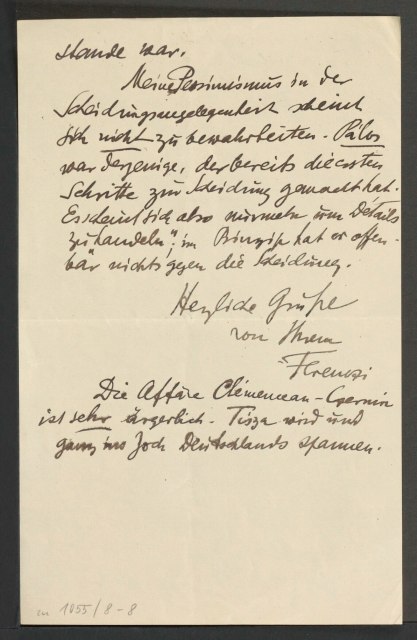 stande war.
Meine Pessimismus in der
Scheidungsangelegenheit scheint
sich nicht zu bewahrheiten. Pálos
war derjenige, der bereits die ersten
Schritte zur Scheidung gemacht hat.
Es scheint sich also nurmehr um Details
zu handeln"; im Prinzip hat er offen-
bar nichts gegen die Scheidung.
Herzliche Grüße
von Ihrem
Ferenczi
Die Affäre Clémenceau-Czernin
ist sehr ärgerlich. Tisza wird und
ganz ins Joch Deutschlands spannen.
1055/8-8